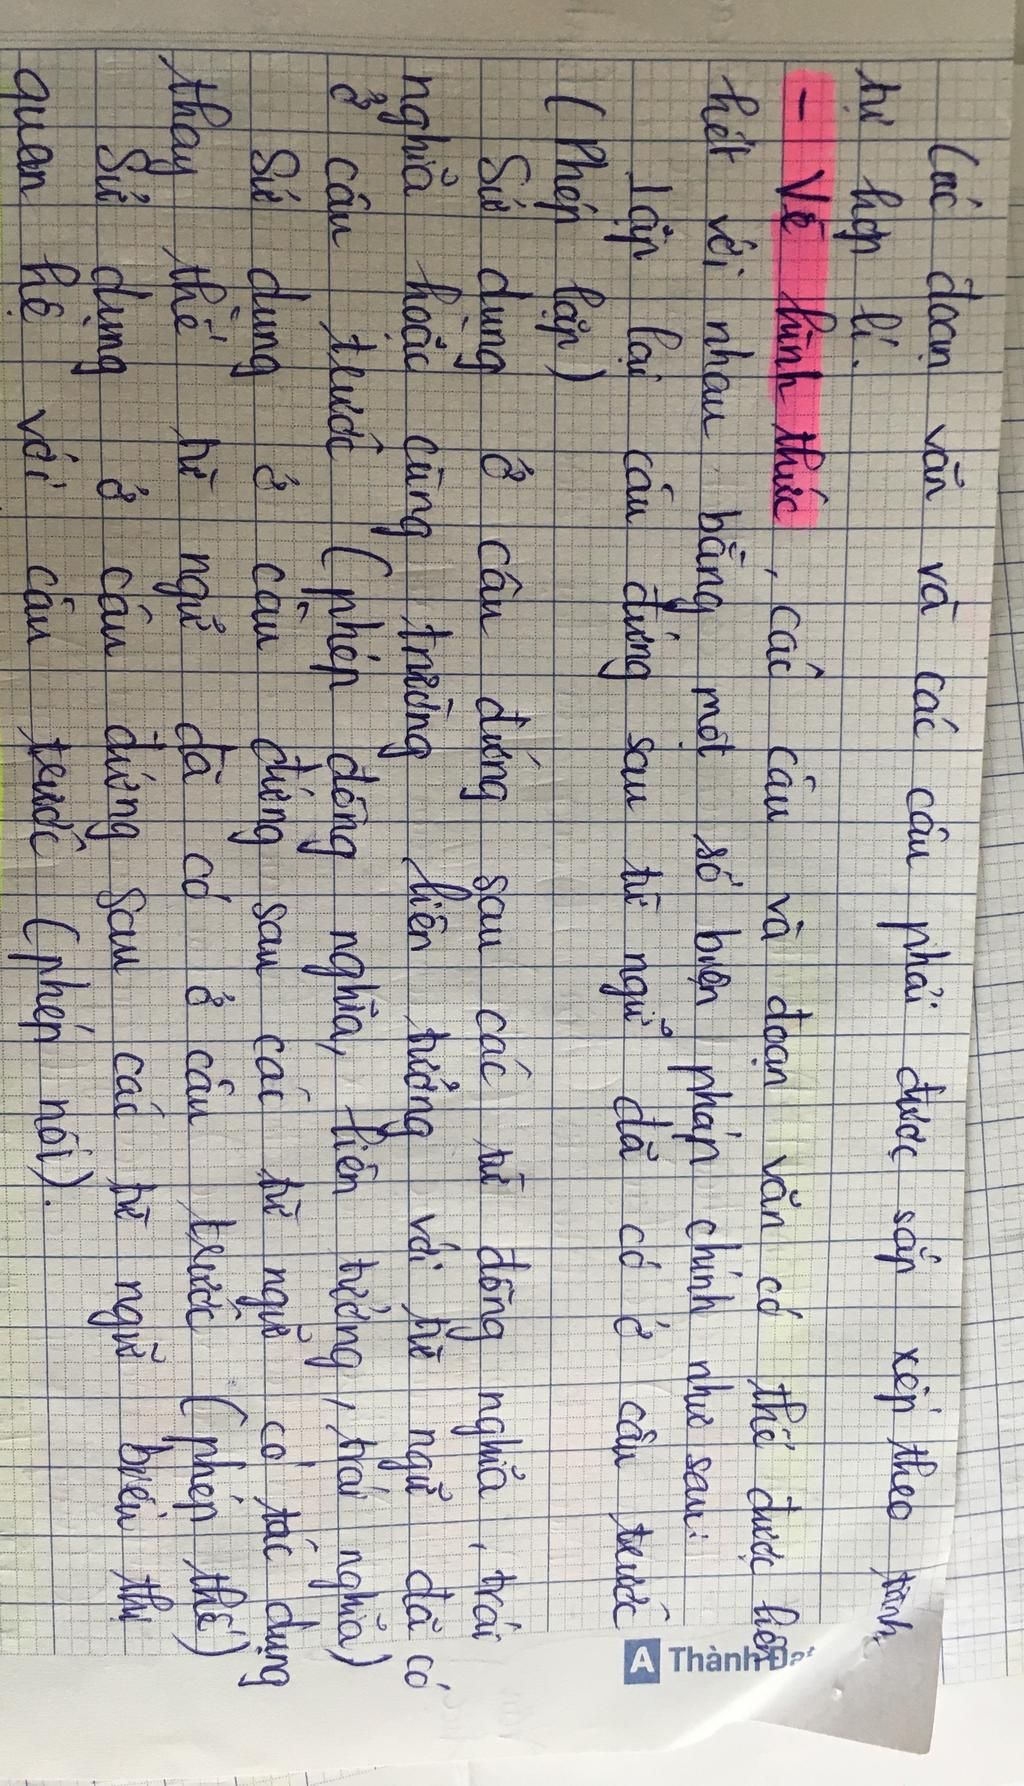 Các đoạn văn và các câu phải được sắp xếp theo trình
tự hợp lí.
- Về hình thức, các câu và đoạn văn có thể được liên
kết với nhau bằng một số biện pháp chính như sau:
Lặp lại câu đứng sau từ ngữ đã có ở câu trước
(Phép lặp)
Sử dụng ở câu đứng sau các từ đồng nghĩa, trái
nghĩa hoặc cùng trường liên tưởng với từ ngữ đã có
ở câu trước (phép đồng nghĩa, liên tưởng, trái nghĩa)
Sử dụng ở câu đứng sau các từ ngữ có tác dụng
thay thế từ ngữ đã có ở câu trước (phép thế)
Sử dụng ở câu đứng sau các từ ngữ biểu thị
quan hệ với câu trước (phép nối).
A Thành Đạt